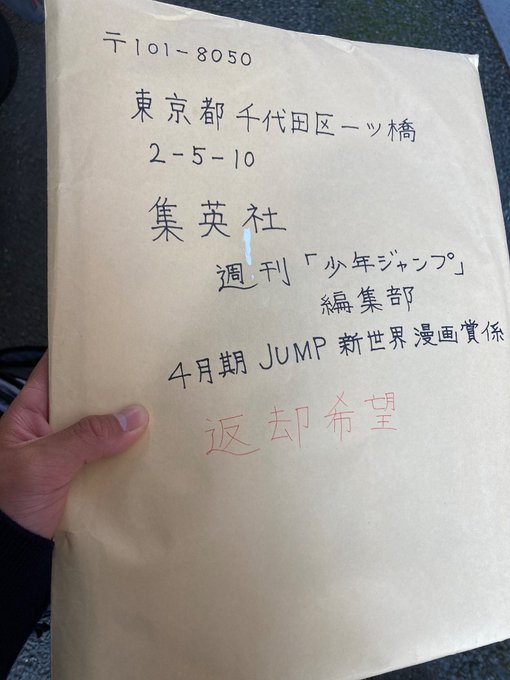 〒101-8050
東京都千代田区一ツ橋
2-5-10
集英社
週刊「少年ジャンプ」
編集部
4月期 JUMP 新世界漫画賞係
返却希望